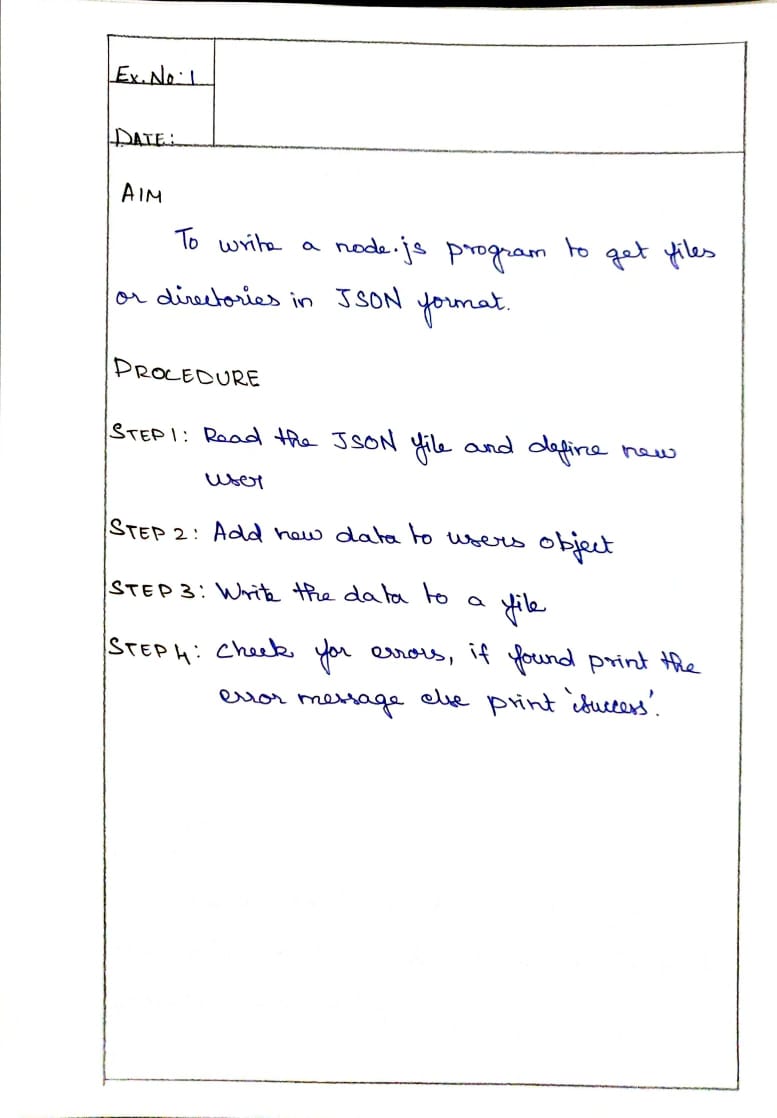 Ex. No: 1
DATE:
AIM
To write a node.js program to get files
or directories in JSON format.
PROCEDURE
STEP 1: Read the JSON file and define new
user
STEP 2: Add new data to users object
STEP 3: Write the data to a file
STEP 4: Check for errors, if found print the
error message else print 'success'.